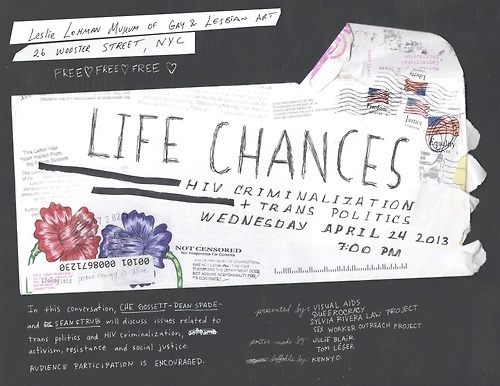 Leslie Lohman Museum of Gay & Lesbian Art
26 Wooster Street, NYC
FREE♡FREE♡FREE ♡
Liberty
Freedom
Justice
Equality
This Letter Has
LIFE CHANCES
HIV CRIMINALIZATION
+ TRANS POLITICS
WEDNESDAY APRIL 24 2013
7:00 PM
NOT CENSORED
Not Responsible For Contents
00101 0008671230
In this conversation, CHE GOSSETT-DEAN SPADE-
and SEAN STRUB will discuss issues related to
trans politics and HIV criminalization,
activism, resistance and social justice.
AUDIENCE PARTICIPATION IS ENCOURAGED.
presented by: VISUAL AIDS
QUEEROCRACY
SYLVIA RIVERA LAW PROJECT
SEX WORKER OUTREACH PROJECT
poster made by: JULIE BLAIR
TOM LÉGER
daffodils by: KENNY O.